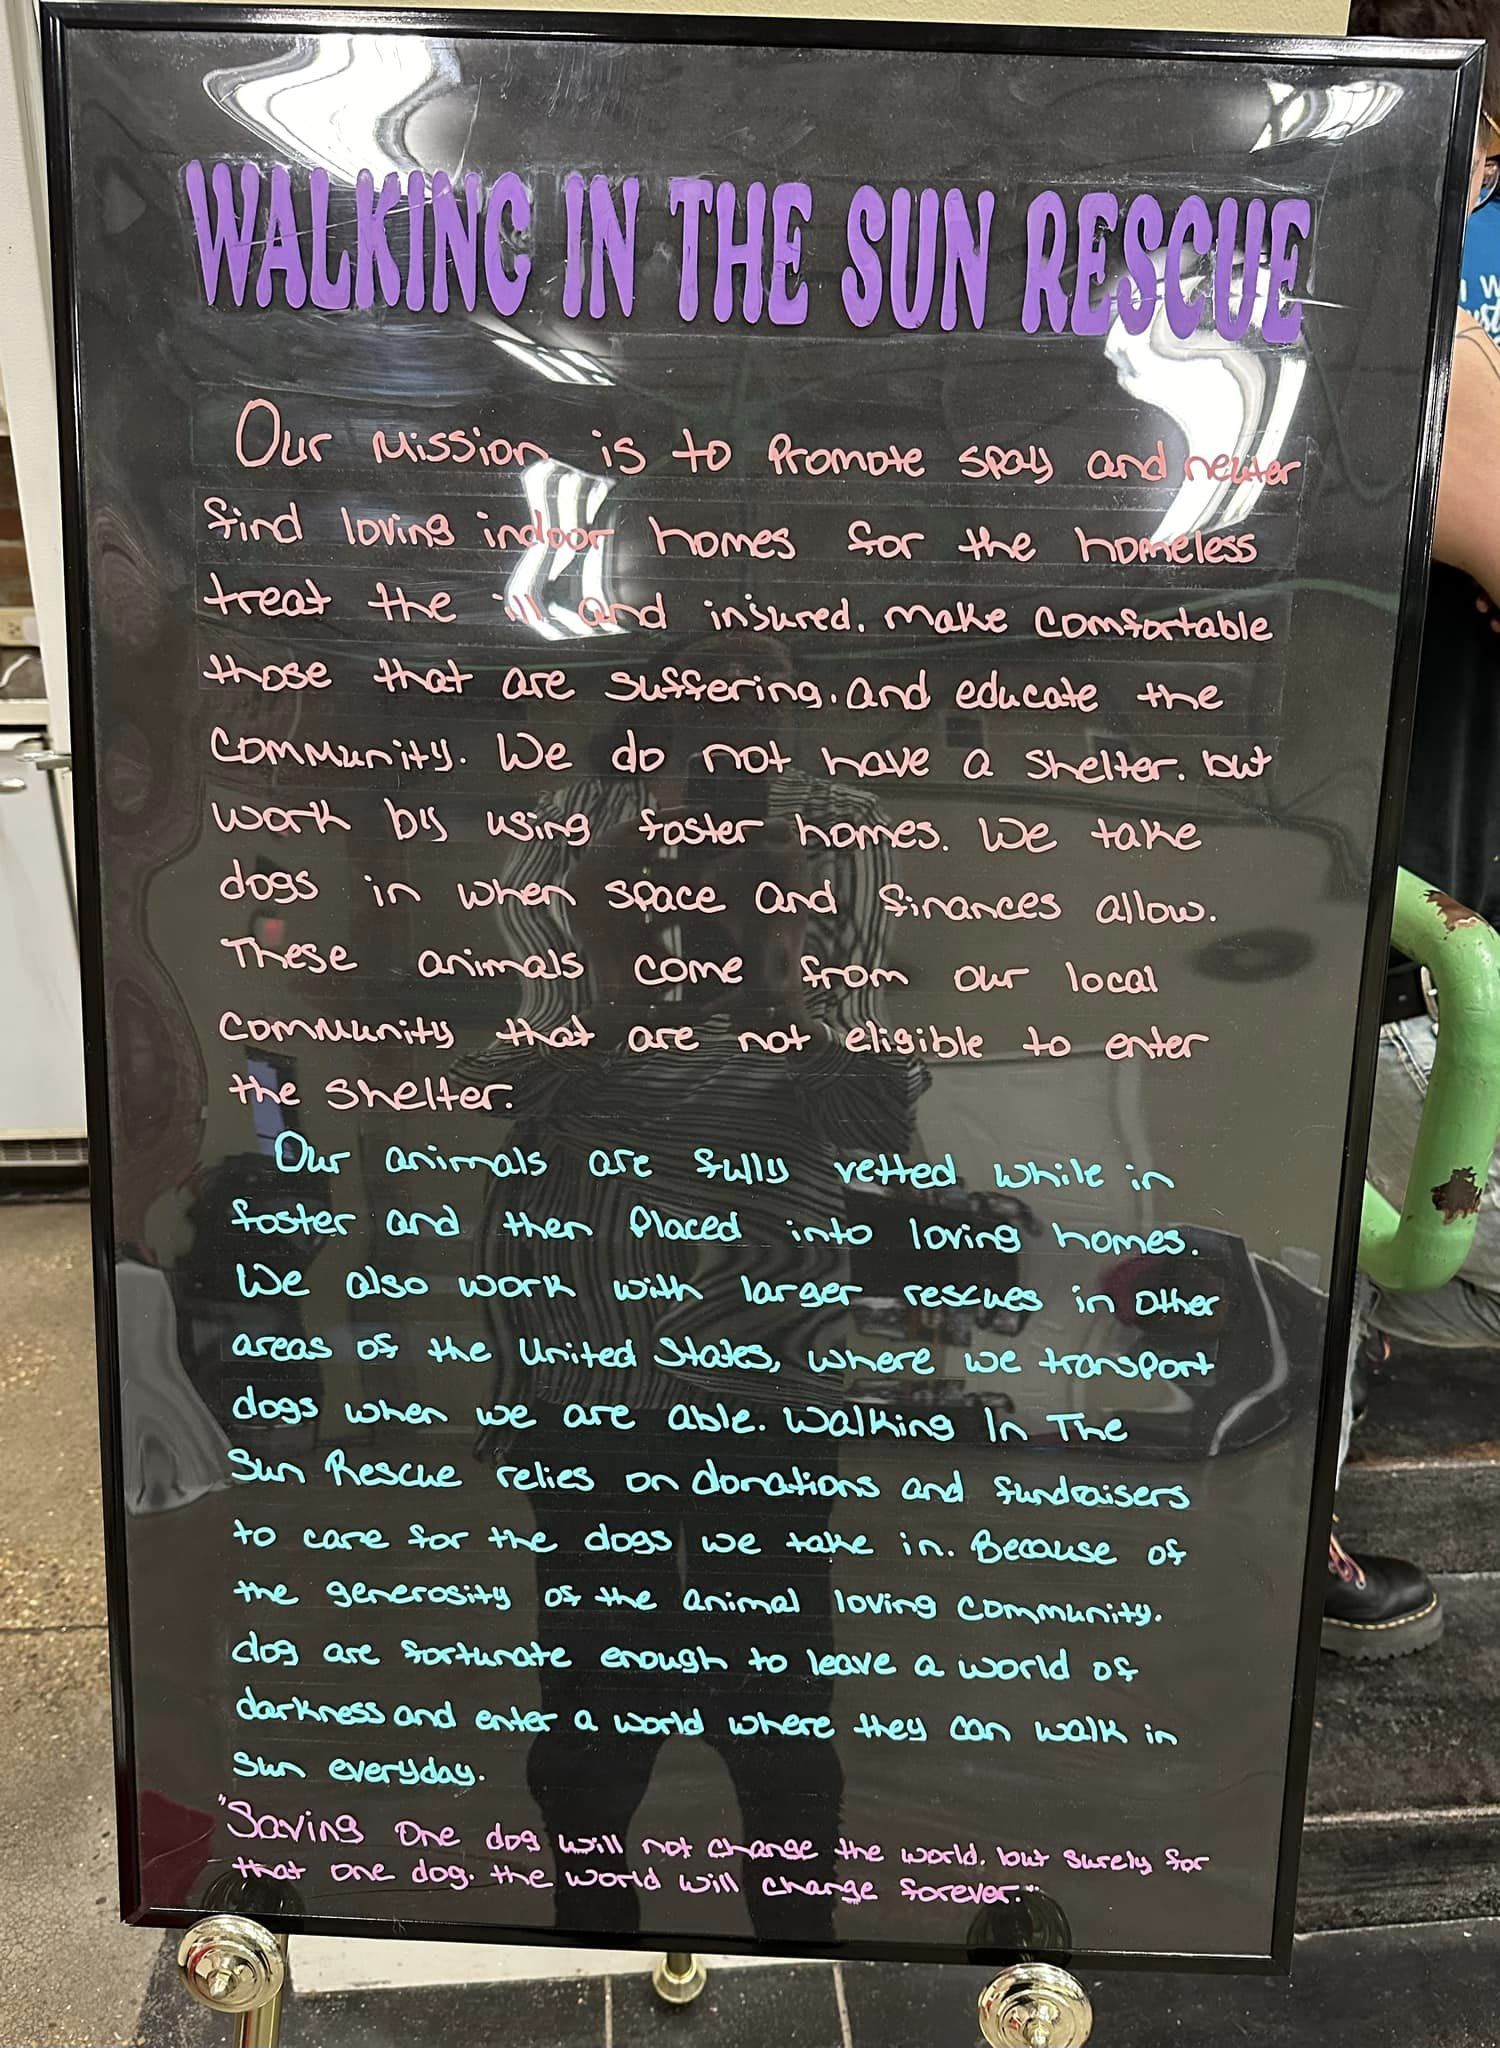 WALKING IN THE SUN RESCUE
Our Mission is to Promote spay and neuter
find loving indoor homes for the homeless
treat the ill and injured. make comfortable
those that are suffering. and educate the
community. We do not have a shelter. but
work by using foster homes. We take
dogs in when space and finances allow.
These animals come from our local
community that are not eligible to enter
the shelter.
Our animals are fully vetted while in
foster and then Placed into loving homes.
We also work with larger rescues in other
areas of the United States, where we transport
dogs when we are able. Walking In The
Sun Rescue relies on donations and fundraisers
to care for the dogs we take in. Because of
the generosity of the animal loving community.
dog are fortunate enough to leave a world of
darkness and enter a world where they can walk in
sun everyday.
"Saving One dog will not change the world. but surely for
that one dog. the world will change forever."